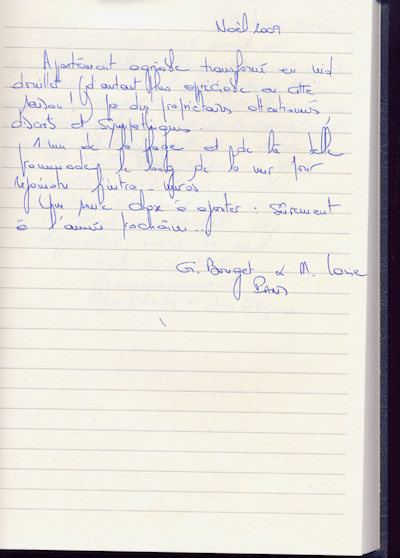 Noël 2009
Appartement agréable transformé en nid
douillet (d'autant plus appréciable en cette
saison!) par des propriétaires attentionnés,
discrets et sympathiques.
1 mn de la plage et de la belle
promenade le long de la mer pour
rejoindre l'intra-muros.
Une seule chose à ajouter : sûrement
à l'année prochaine...
G. Bouget & M.
PARIS